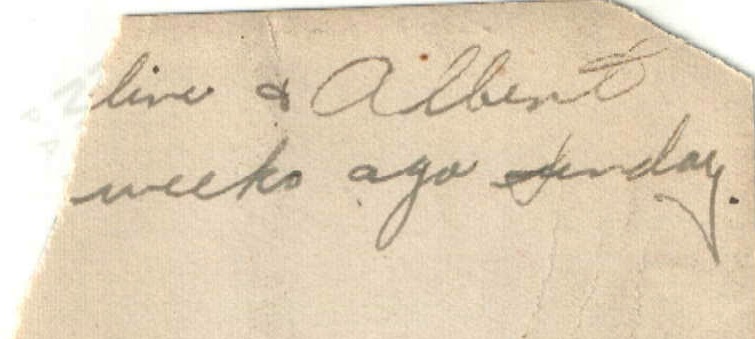 line & Albert
weeks ago Sunday.